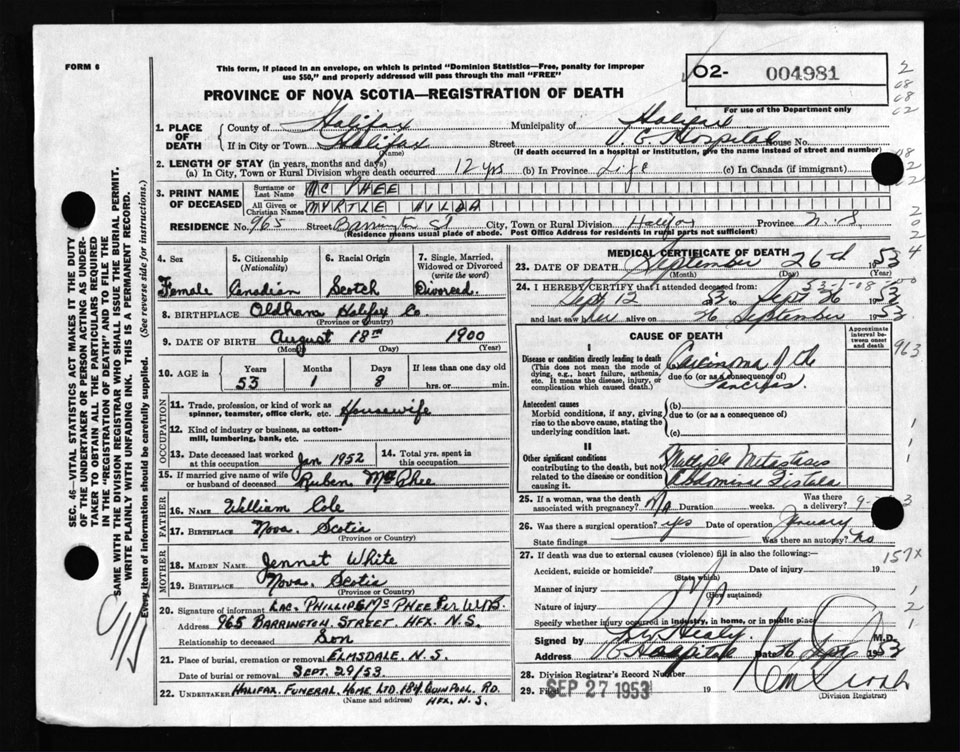 FORM 6
This form, if placed in an envelope, on which is printed "Dominion Statistics—Free, penalty for improper
use $50," and properly addressed will pass through the mail "FREE"
O2- 004981
For use of the Department only
PROVINCE OF NOVA SCOTIA—REGISTRATION OF DEATH
1. PLACE OF DEATH
County of Halifax Municipality of Halifax
If in City or Town Halifax Street V.G. Hospital House No.
(Name) (If death occurred in a hospital or institution, give the name instead of street and number)
2. LENGTH OF STAY (in years, months and days)
(a) In City, Town or Rural Division where death occurred 12 yrs (b) In Province Life (c) In Canada (if immigrant)
3. PRINT NAME OF DECEASED
Surname or Last Name MC PHEE
All Given or Christian Names MYRTLE HILDA
RESIDENCE No. 965 Street Barrington St City, Town or Rural Division Halifax Province N.S.
(Residence means usual place of abode. Post Office Address for residents in rural parts not sufficient)
4. Sex
Female
5. Citizenship
(Nationality)
Canadian
6. Racial Origin
Scotch
7. Single, Married,
Widowed or Divorced
(write the word)
Divorced.
8. BIRTHPLACE Oldham Halifax Co.
(Province or Country)
9. DATE OF BIRTH August 18th 1900
(Month) (Day) (Year)
10. AGE in
Years Months Days If less than one day old
53 1 8 hrs. or min.
OCCUPATION
11. Trade, profession, or kind of work as
spinner, teamster, office clerk, etc. Housewife
12. Kind of industry or business, as cotton-
mill, lumbering, bank, etc.
13. Date deceased last worked
at this occupation Jan 1952
14. Total yrs. spent in
this occupation
15. If married give name of wife
or husband of deceased Ruben McPhee
FATHER
16. NAME William Cole
17. BIRTHPLACE Nova Scotia
(Province or Country)
MOTHER
18. MAIDEN NAME Jennet White
19. BIRTHPLACE Nova Scotia
(Province or Country)
20. Signature of informant LAC. PHILLIP McPHEE Per
Address 965 BARRINGTON STREET HFX. N.S.
Relationship to deceased Son
21. Place of burial, cremation or removal ELMSDALE. N.S.
Date of burial or removal SEPT. 29/53.
22. UNDERTAKER HALIFAX FUNERAL HOME LTD 184 QUINPOOL RD.
(Name and address) HFX. N.S.
MEDICAL CERTIFICATE OF DEATH
23. DATE OF DEATH September 26th 1953
(Month) (Day) (Year)
24. I HEREBY CERTIFY that I attended deceased from:
Sept 12 53 to Sept 26 1953
and last saw her alive on 26 September 1953
CAUSE OF DEATH
Approximate
interval
between onset
and death
I
Disease or condition directly leading to death
(This does not mean the mode of
dying, e.g., heart failure, asthenia,
etc. It means the disease, injury, or
complication which caused death.)
Carcinoma of the
due to (or as a consequence of)
Pancreas.
Antecedent causes
Morbid conditions, if any, giving
rise to the above cause, stating the
underlying condition last.
(b)
due to (or as a consequence of)
(c)
II
Other significant conditions
contributing to the death, but not
related to the disease or condition
causing it.
Multiple Metastasis
Abdominal Fistula
25. If a woman, was the death
associated with pregnancy? N/A Duration weeks. Was there
a delivery?
26. Was there a surgical operation? yes Date of operation January
State findings Was there an autopsy? No
27. If death was due to external causes (violence) fill in also the following:—
Accident, suicide or homicide? Date of injury 19
(State which)
Manner of injury
(How sustained)
Nature of injury
Specify whether injury occurred in industry, in home, or in public place
Signed by Healy M.D.
Address V.G. Hospital Date 26 Sept 1953
28. Division Registrar's Record Number
29. Filed SEP 27 1953 19
(Division Registrar)
SEC. 46—VITAL STATISTICS ACT MAKES IT THE DUTY
OF THE UNDERTAKER OR PERSON ACTING AS UNDER-
TAKER TO OBTAIN ALL THE PARTICULARS REQUIRED
IN THE "REGISTRATION OF DEATH" AND TO FILE THE
SAME WITH THE DIVISION REGISTRAR WHO SHALL ISSUE THE BURIAL PERMIT.
WRITE PLAINLY WITH UNFADING INK. THIS IS A PERMANENT RECORD.
Every item of information should be carefully supplied. (See reverse side for instructions.)
963
157X